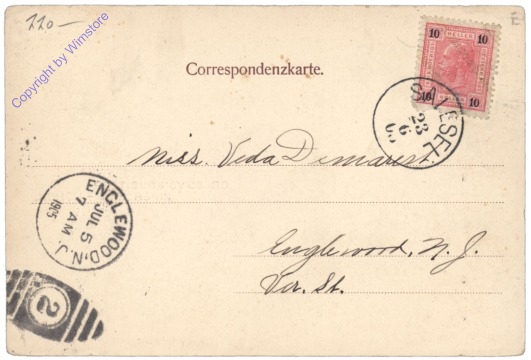 220.—
Copyright by Wimstore
Correspondenzkarte.
10 HELLER 10
10 10
23
6
Miss. Veda Demarest,
ENGLEWOOD, N.J.
JUL 5
7 AM
1905
Englewood, N. J.
Ver. St.
2